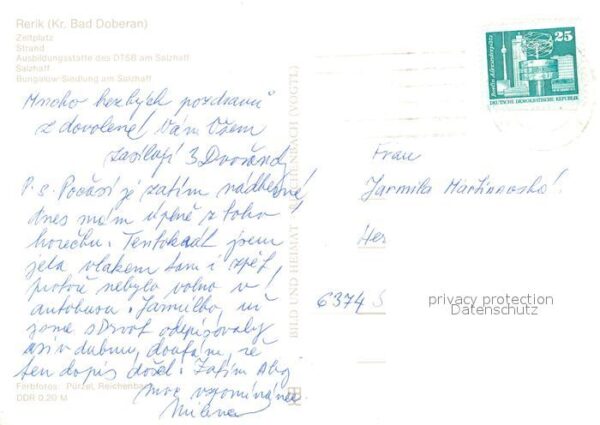 Rerik (Kr. Bad Doberan)
Zeltplatz
Strand
Ausbildungsstätte des DTSB am Salzhaff
Salzhaff
Bungalow-Siedlung am Salzhaff
Mnoho hezkých pozdravů
z dovolené Vám všem
zasílají 3 Dvořandy
P.S. Počasí je zatím nádherné,
dnes mám úplně z toho
horečku. Tentokrát jsem
jela vlakem tam i zpět,
protože nebylo volno v
autobusu. Jarmilko, už
jsme odepisovaly
asi v dubnu, doufám, že
ten dopis došel. Zatím Ahoj
moc vzpomínáme
Milena
Farbfotos: Pürzel, Reichenbach
DDR 0,20 M
BILD UND HEIMAT REICHENBACH (VOGTL)
Berlin, Alexanderplatz
25
DEUTSCHE DEMOKRATISCHE REPUBLIK
Frau
Jarmila Martinovská
6374 S
privacy protection
Datenschutz